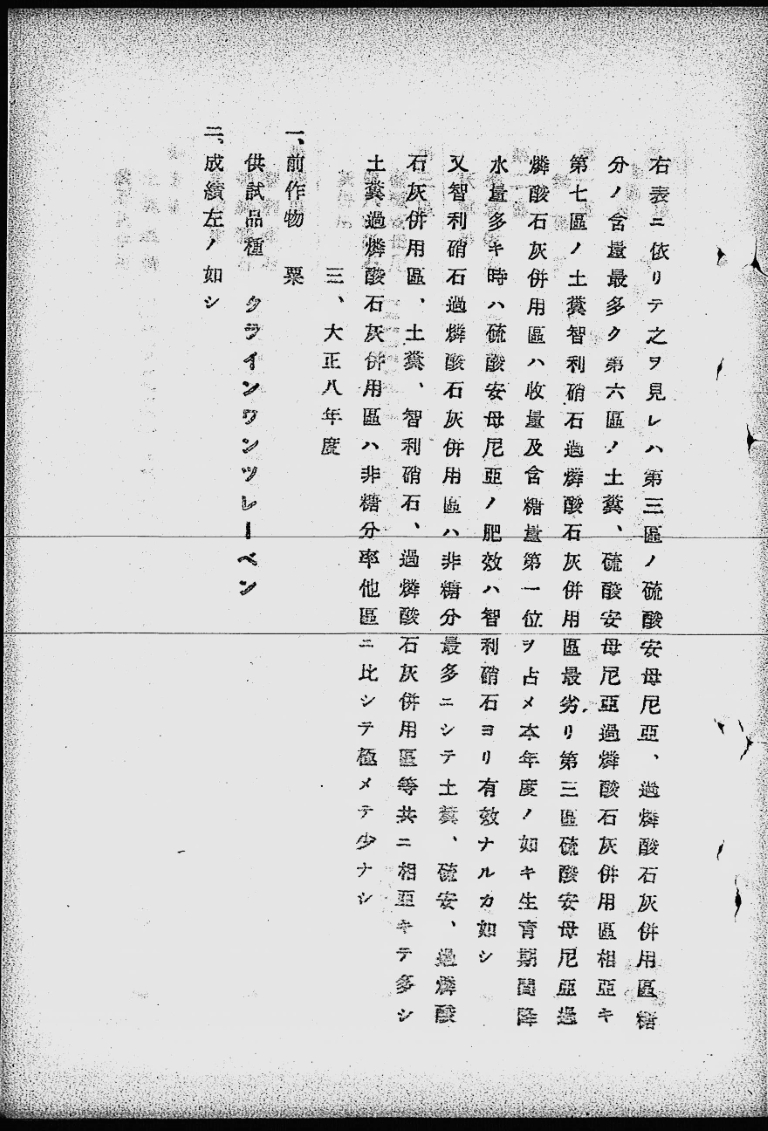 右表ニ依リテ之ヲ見レハ第三區ノ硫酸安母尼亞、過燐酸石灰併用區糖
分ノ含量最多ク第六區ノ土糞、硫酸安母尼亞過燐酸石灰併用區相亞キ
第七區ノ土糞智利硝石過燐酸石灰併用區最劣リ第三區硫酸安母尼亞過
燐酸石灰併用區ハ收量及含糖量第一位ヲ占メ本年度ノ如キ生育期間降
水量多キ時ハ硫酸安母尼亞ノ肥效ハ智利硝石ヨリ有效ナルカ如シ
又智利硝石過燐酸石灰併用區ハ非糖分最多ニシテ土糞、硫安、過燐酸
石灰併用區、土糞、智利硝石、過燐酸石灰併用區等共ニ相亞キテ多シ
土糞過燐酸石灰併用區ハ非糖分率他區ニ比シテ極メテ少ナシ
三、大正八年度
一、前作物 粟
供試品種 クラインワンツレーベン
二、成績左ノ如シ